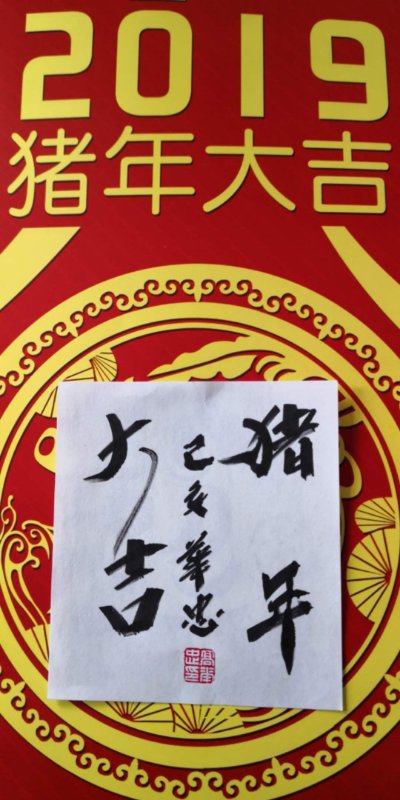 2019
猪年大吉
猪年
己亥華忠
大吉